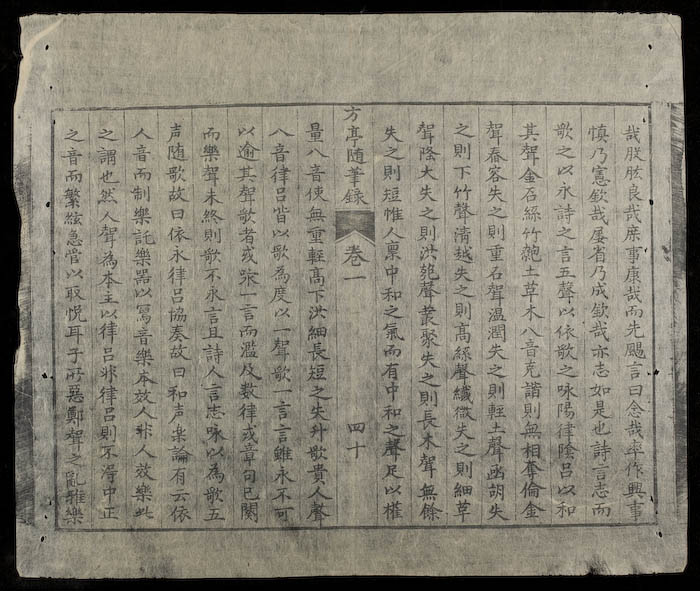 哉股肱良哉庶事康哉而先颺言曰念哉率作興事
慎乃憲欽哉屢省乃成欽哉亦志如是也詩言志而
歌之以永詩之言五聲以依歌之咏陽律陰呂以和
其聲金石絲竹匏土草木八音克諧則無相奪倫金
聲舂容失之則重石聲温潤失之則輕土聲函胡失
之則下竹聲清越失之則高絲聲纖微失之則細草
聲隆大失之則洪匏聲叢聚失之則長木聲無餘
失之則短惟人禀中和之氣而有中和之聲足以權
方亭随筆録 卷一 四十
量八音使無重輕高下洪細長短之失升歌貴人聲
八音律呂皆以歌為度以一聲歌一言言雖永不可
以逾其聲歌者或咏一言而濫及数律或章句已闋
而樂聲未終則歌不永言且詩人言志咏以為歌五
声随歌故曰依永律呂協奏故曰和声楽論有云依
人音而制樂託樂器以寫音樂本效人非人效樂此
之謂也然人聲為本主以律呂非律呂則不得中正
之音而繁絃急管以取悅耳子所惡鄭聲之亂雅樂